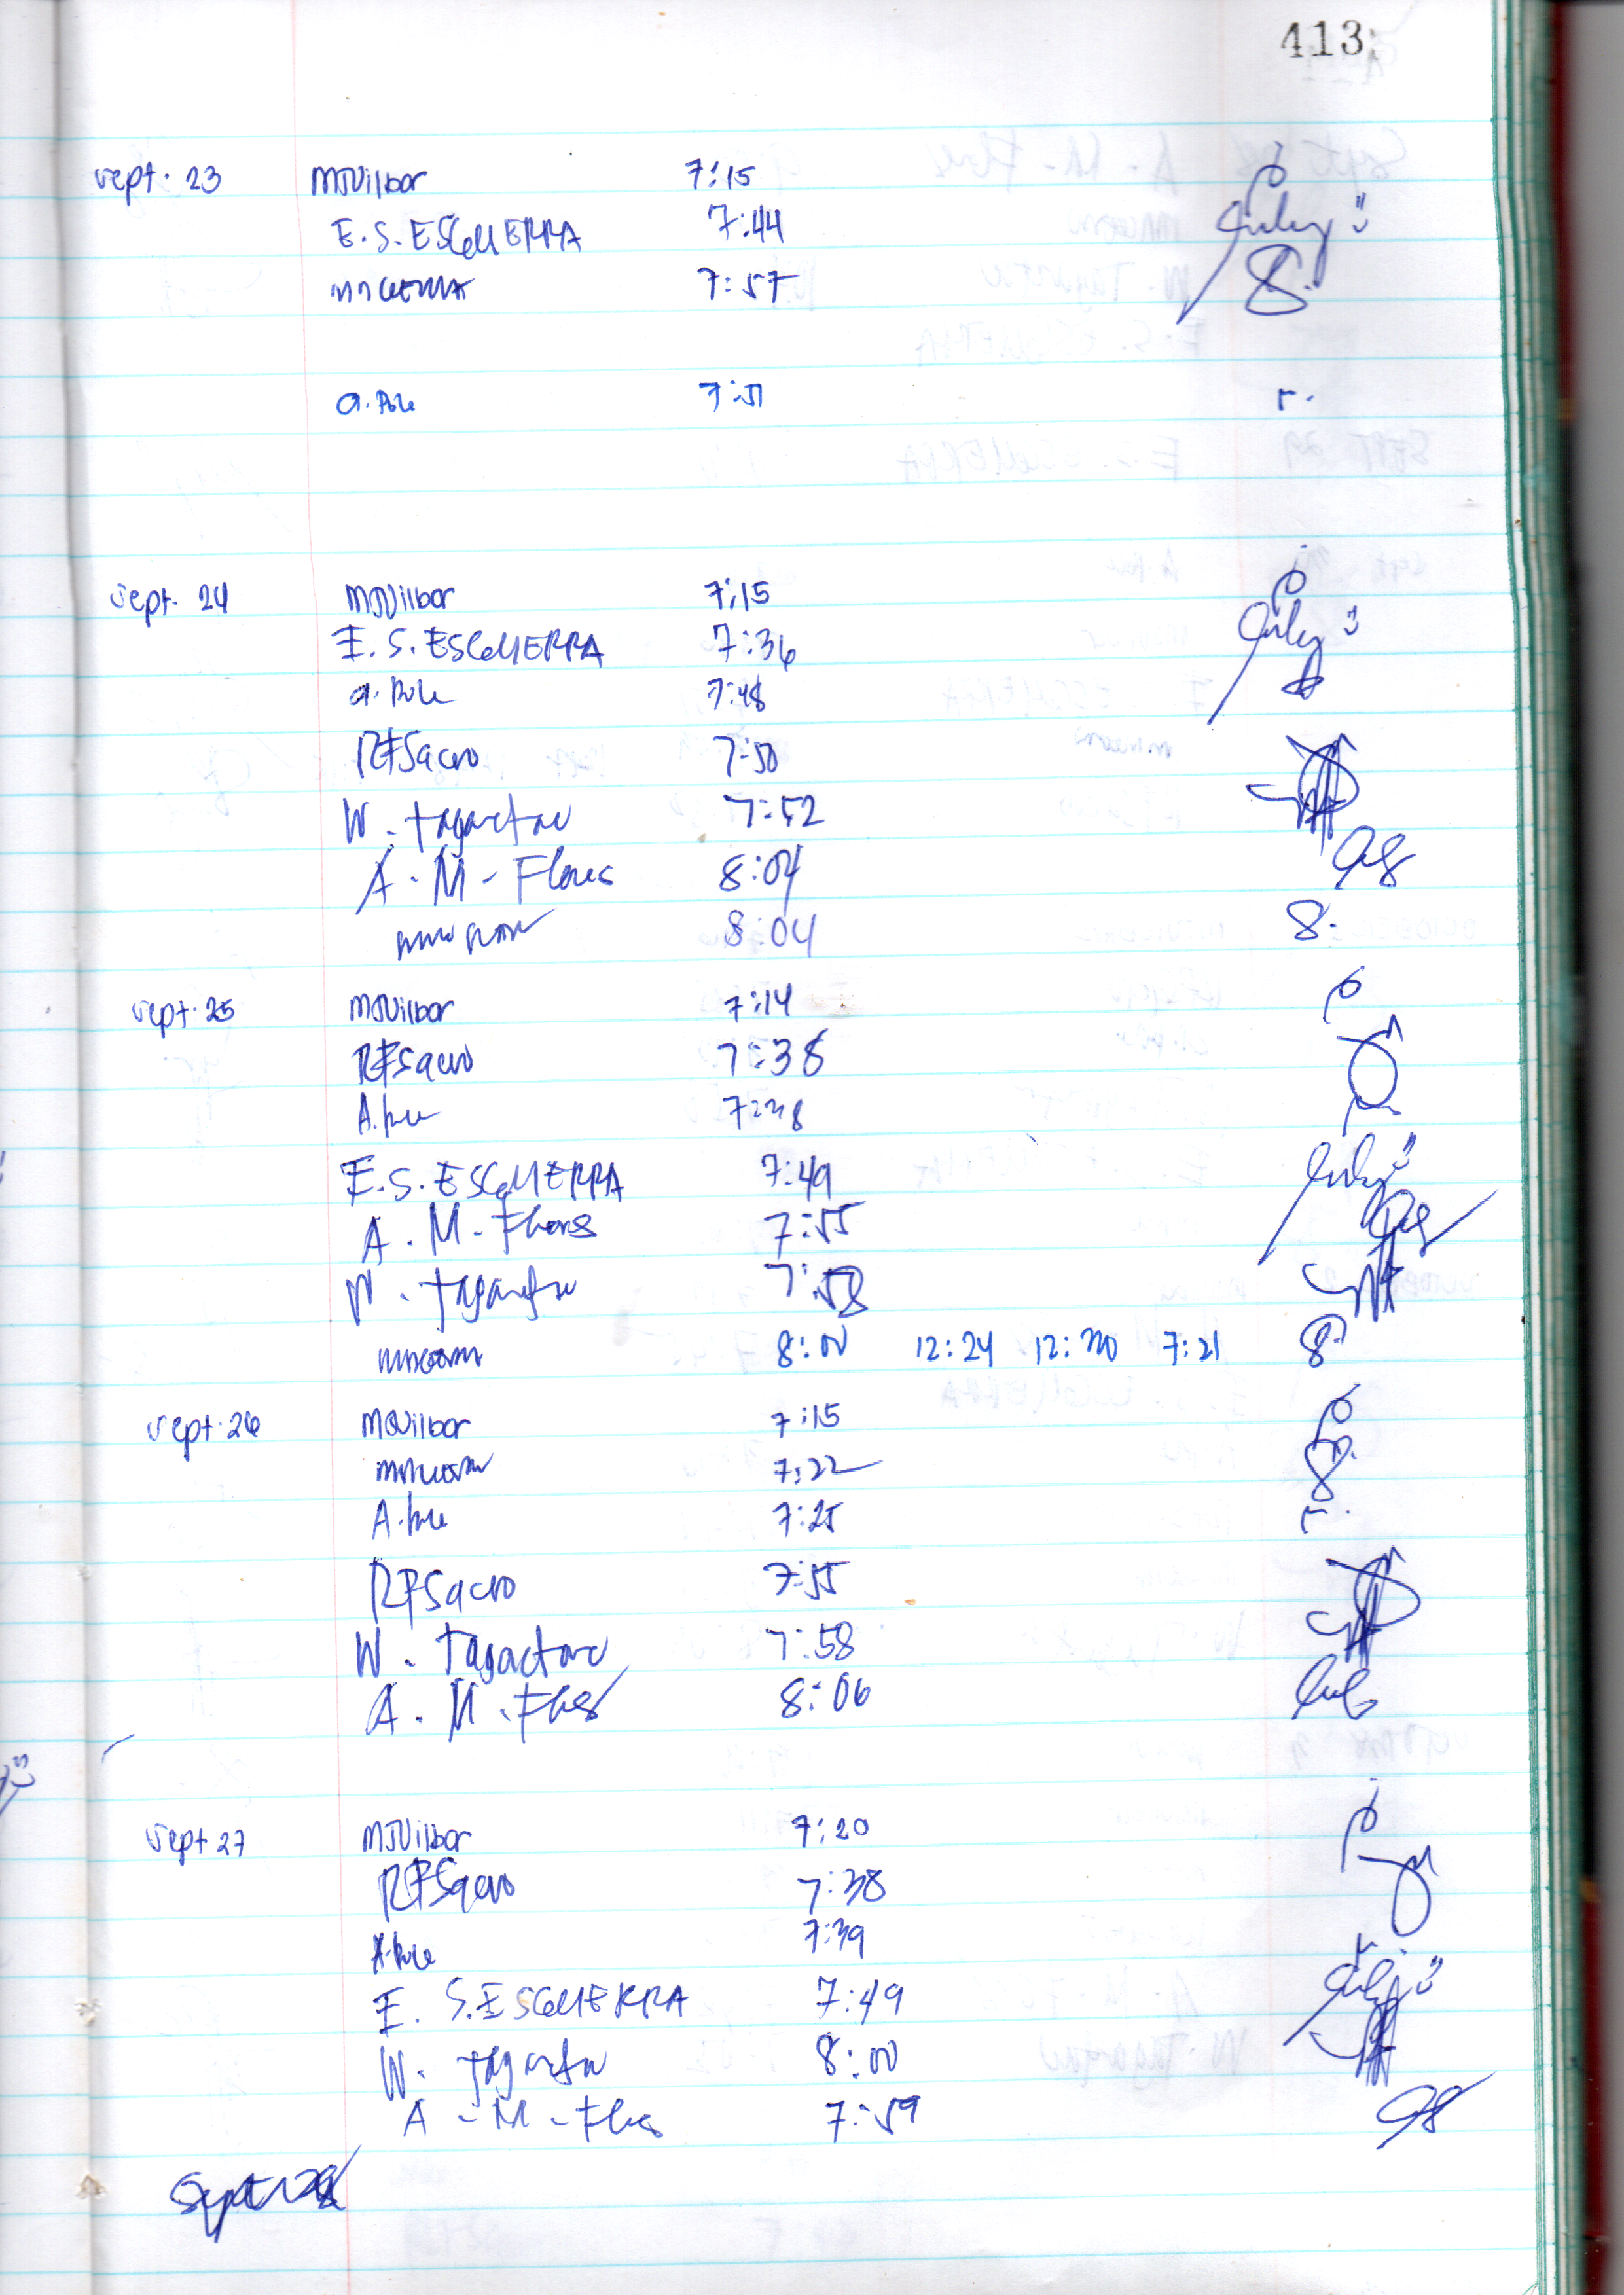 413
Sept. 23 MJVilbar 7:15
E. S. ESGUERRA 7:44
7:57
A. Pole 7:51
Sept. 24 MJVilbar 7:15
E. S. ESGUERRA 7:36
A. Pole 7:48
RFSacro 7:50
W. Tagactac 7:52
A. M. Flores 8:04
8:04
Sept. 25 MJVilbar 7:14
RFSacro 7:38
A. Pole 7:38
E. S. ESGUERRA 7:49
A. M. Flores 7:55
W. Tagactac 7:58
8:00 12:24 12:30 7:21
Sept. 26 MJVilbar 7:15
7:22
A. Pole 7:25
RFSacro 7:55
W. Tagactac 7:58
A. M. Flores 8:06
Sept 27 MJVilbar 7:20
RFSacro 7:38
A. Pole 7:39
E. S. ESGUERRA 7:49
W. Tagactac 8:00
A - M - Flores 7:59
Sept 28